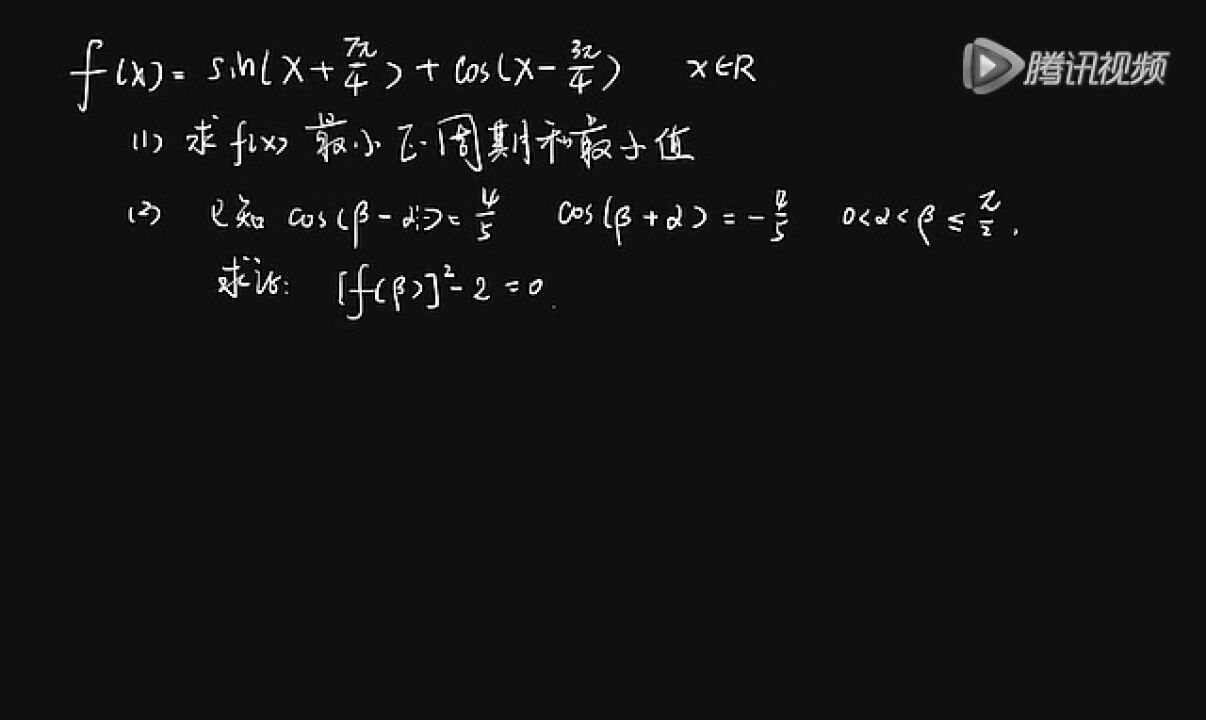 f(x) = sin(x + 7π/4) + cos(x - 3π/4) x∈R
腾讯视频
(1) 求 f(x) 最小正周期和最小值
(2) 已知 cos(β - α) = 4/5 cos(β + α) = -4/5 0<α<β≤π/2,
求证: [f(β)]² - 2 = 0.